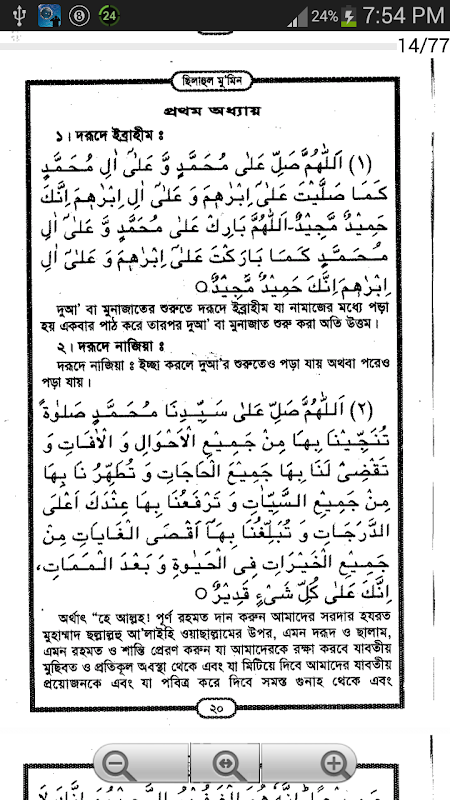 24%
7:54 PM
14/77
ছিলাহুল মু'মিন
প্রথম অধ্যায়
১। দরূদে ইব্রাহীম ঃ
(١) اَللّٰهُمَّ صَلِّ عَلٰى مُحَمَّدٍ وَّ عَلٰٓى اٰلِ مُحَمَّدٍ
كَمَا صَلَّيْتَ عَلٰٓى اِبْرٰهِيْمَ وَ عَلٰٓى اٰلِ اِبْرٰهِيْمَ اِنَّكَ
حَمِيْدٌ مَّجِيْدٌ-اَللّٰهُمَّ بَارِكْ عَلٰى مُحَمَّدٍ وَّ عَلٰٓى اٰلِ
مُحَمَّدٍ كَمَا بَارَكْتَ عَلٰٓى اِبْرٰهِيْمَ وَ عَلٰٓى اٰلِ
اِبْرٰهِيْمَ اِنَّكَ حَمِيْدٌ مَّجِيْدٌ ○
দুআ' বা মুনাজাতের শুরুতে দরূদে ইব্রাহীম যা নামাজের মধ্যে পড়া
হয় একবার পাঠ করে তারপর দুআ' বা মুনাজাত শুরু করা অতি উত্তম।
২। দরূদে নাজিয়া ঃ
দরূদে নাজিয়া ঃ ইচ্ছা করলে দুআ'র শুরুতেও পড়া যায় অথবা পরেও
পড়া যায়।
(٢) اَللّٰهُمَّ صَلِّ عَلٰى سَيِّدِنَا مُحَمَّدٍ صَلٰوةً
تُنَجِّيْنَا بِهَا مِنْ جَمِيْعِ الْاَحْوَالِ وَ الْاٰفَاتِ وَ
تَقْضِىْ لَنَا بِهَا جَمِيْعَ الْحَاجَاتِ وَ تُطَهِّرُ نَا بِهَا
مِنْ جَمِيْعِ السَّيِّاٰتِ وَ تَرْفَعُنَا بِهَا عِنْدَكَ اَعْلَى
الدَّرَجَاتِ وَ تُبَلِّغُنَا بِهَا اَقْصَى الْغَايَاتِ مِنْ
جَمِيْعِ الْخَيْرَاتِ فِى الْحَيٰوةِ وَ بَعْدَ الْمَمَاتِ،
اِنَّكَ عَلٰى كُلِّ شَىْءٍ قَدِيْرٌ ○
অর্থাৎ "হে আল্লহ! পূর্ণ রহমত দান করুন আমাদের সরদার হযরত
মুহাম্মাদ ছল্লাল্লহু আ'লাইহি ওয়াছাল্লামের উপর, এমন দরূদ ও ছালাম,
এমন রহমত ও শান্তি প্রেরণ করুন যা আমাদেরকে রক্ষা করবে যাবতীয়
মুছিবত ও প্রতিকূল অবস্থা থেকে এবং যা মিটিয়ে দিবে আমাদের যাবতীয়
প্রয়োজনকে এবং যা পবিত্র করে দিবে সমস্ত গুনাহ থেকে এবং
২০